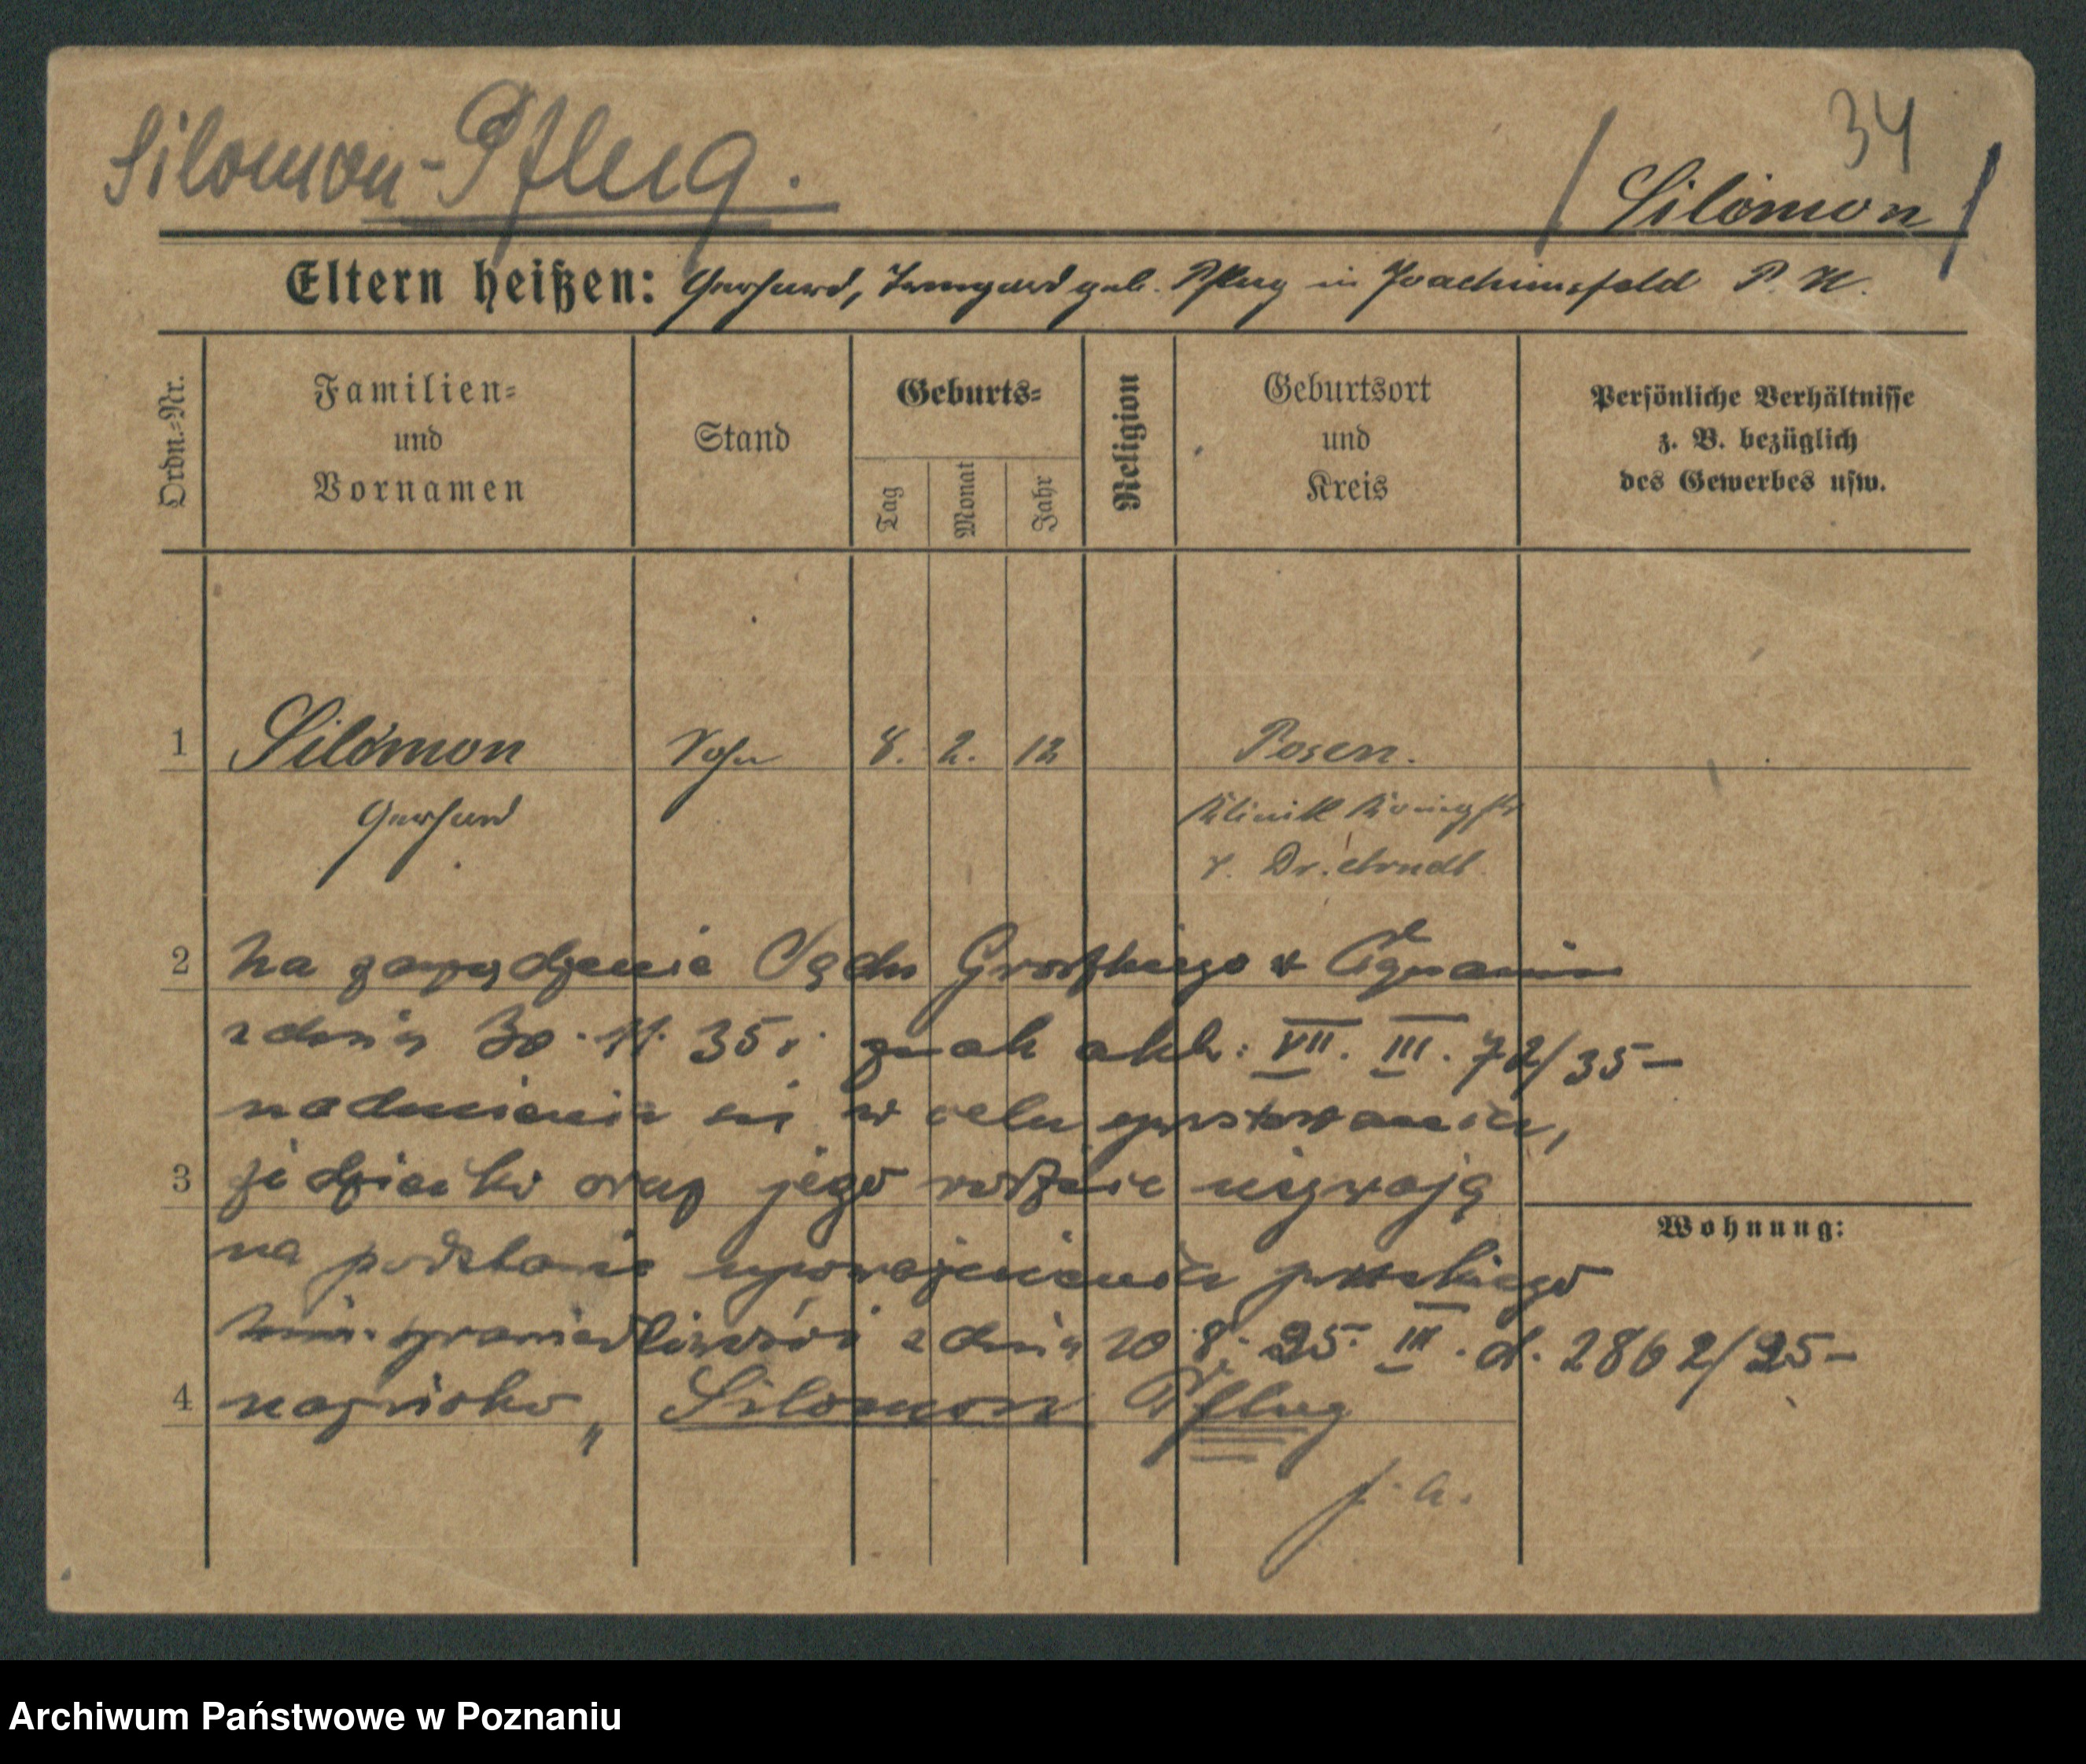 34
Silomon-Pflug.
/ Silomon /
Eltern heißen: Gerhard, Irmgard geb. Pflug in Joachimsfeld P. K.
Ordn.-Nr.
Familien-
und
Vornamen
Stand
Geburts-
Tag
Monat
Jahr
Religion
Geburtsort
und
Kreis
Persönliche Verhältnisse
z. B. bezüglich
des Gewerbes usw.
1 Silomon Sohn 8. 2. 12 Posen.
Gerhard Klinik Königstr
v. Dr.
2 Na zarządzenie Sądu Grodzkiego w
z dnia 30. 11. 35 r. znak akt: VII. III. 72/35-
nadmienia się w celu sprostowania,
3 że dziecko oraz jego rodzice używają
Wohnung:
na podstawie upoważnienia pruskiego
min. sprawiedliwości z dnia 20 8. 25. III. d. 2862/25-
4 nazwisko „ Silomon Pflug
Archiwum Państwowe w Poznaniu